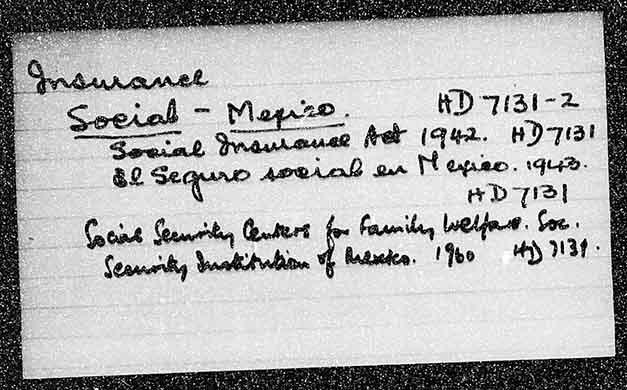 Insurance
Social - Mexico. HD 7131-2
Social Insurance Act 1942. HD 7131
El Seguro social en Mexico. 1943.
HD 7131
Social Security Centers for Family Welfare. Soc.
Security Institution of Mexico. 1960 HD 7131.